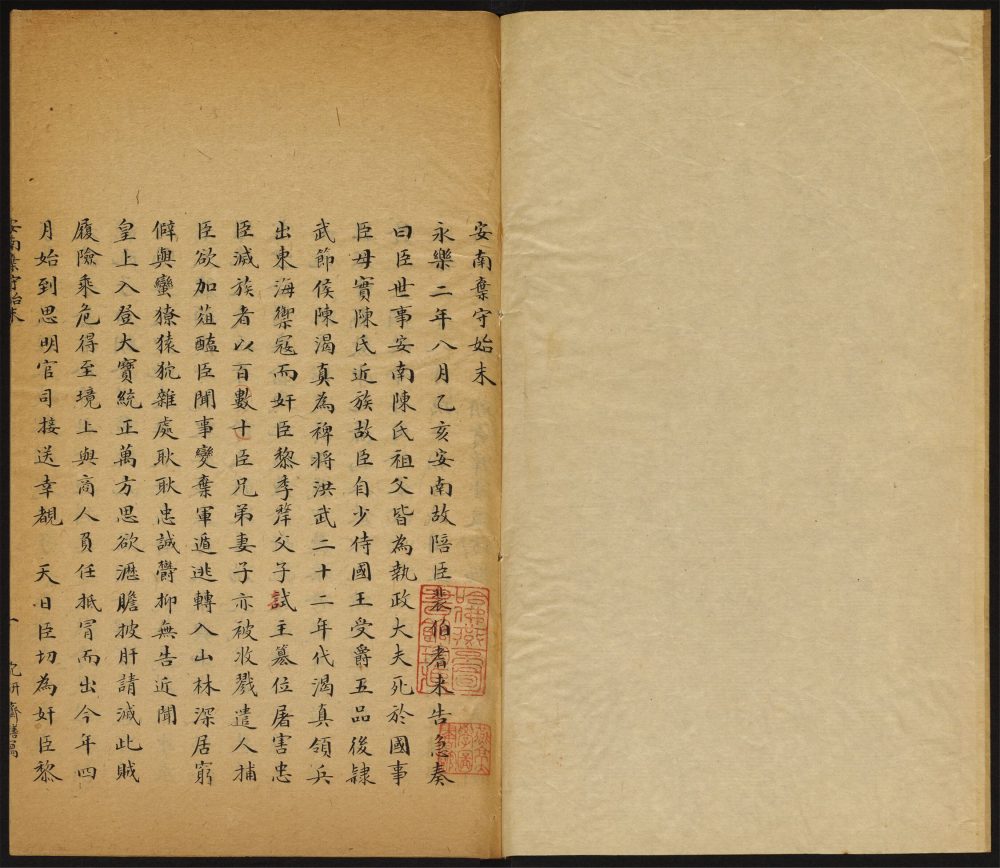 安南棄守始末
永樂二年八月乙亥安南故陪臣裴伯耆來告急奏
曰臣世事安南陳氏祖父皆為執政大夫死於國事
臣母實陳氏近族故臣自少侍國王受爵五品後隸
武節侯陳渴真為裨將洪武二十二年代渴真領兵
出東海禦寇而奸臣黎季犛父子試主篡位屠害忠
臣滅族者以百數十臣兄弟妻子亦被收戮遣人捕
臣欲加葅醢臣聞事變棄軍遁逃轉入山林深居窮
僻與蠻獠猿狖雜處耿耿忠誠鬱抑無告近聞
皇上入登大寶統正萬方思欲瀝膽披肝請滅此賊
履險乘危得至境上與商人負任抵冒而出今年四
月始到思明官司接送幸覩 天日臣切為奸臣黎
安南棄守始末 一 研齋繕寫